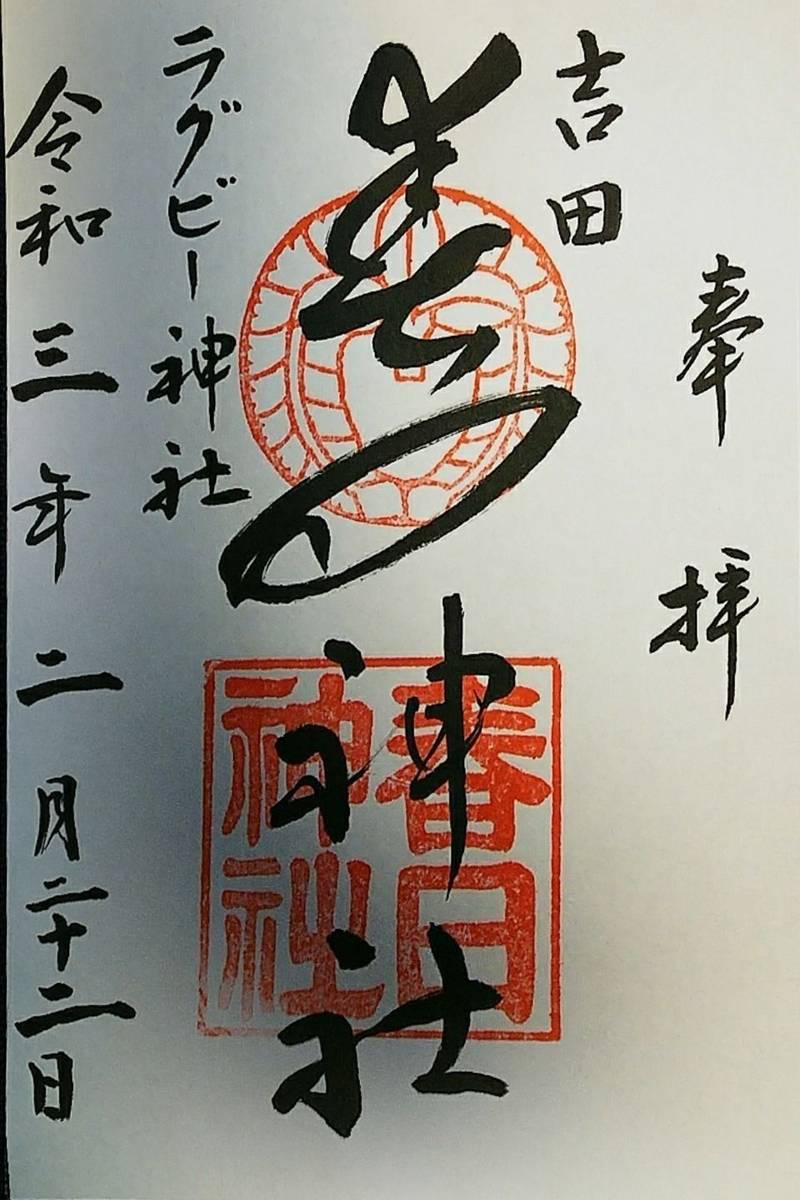 奉拝
吉田
春日神社
春日神社
ラグビー神社
令和三年二月二十二日